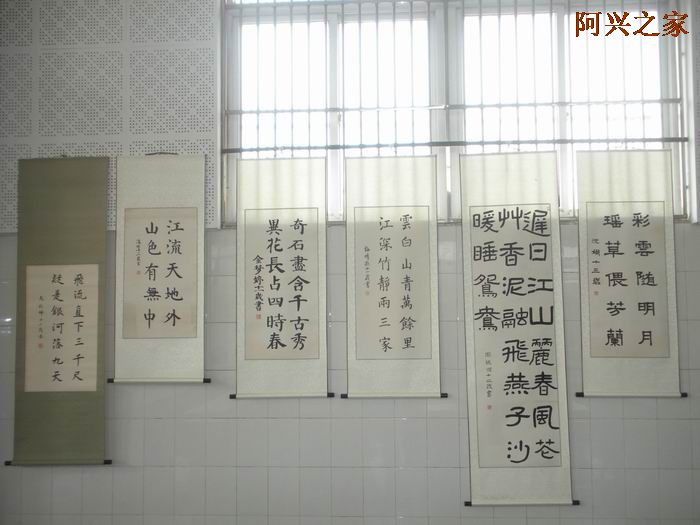 阿兴之家
飛流直下三千尺
疑是銀河落九天
江流天地外
山色有無中
奇石盡含千古秀
異花長占四時春
雲白山青萬餘里
江深竹靜兩三家
遲日江山麗春風花
艸香泥融飛燕子沙
暖睡鴛鴦
彩雲隨明月
瑤草偎芳蘭